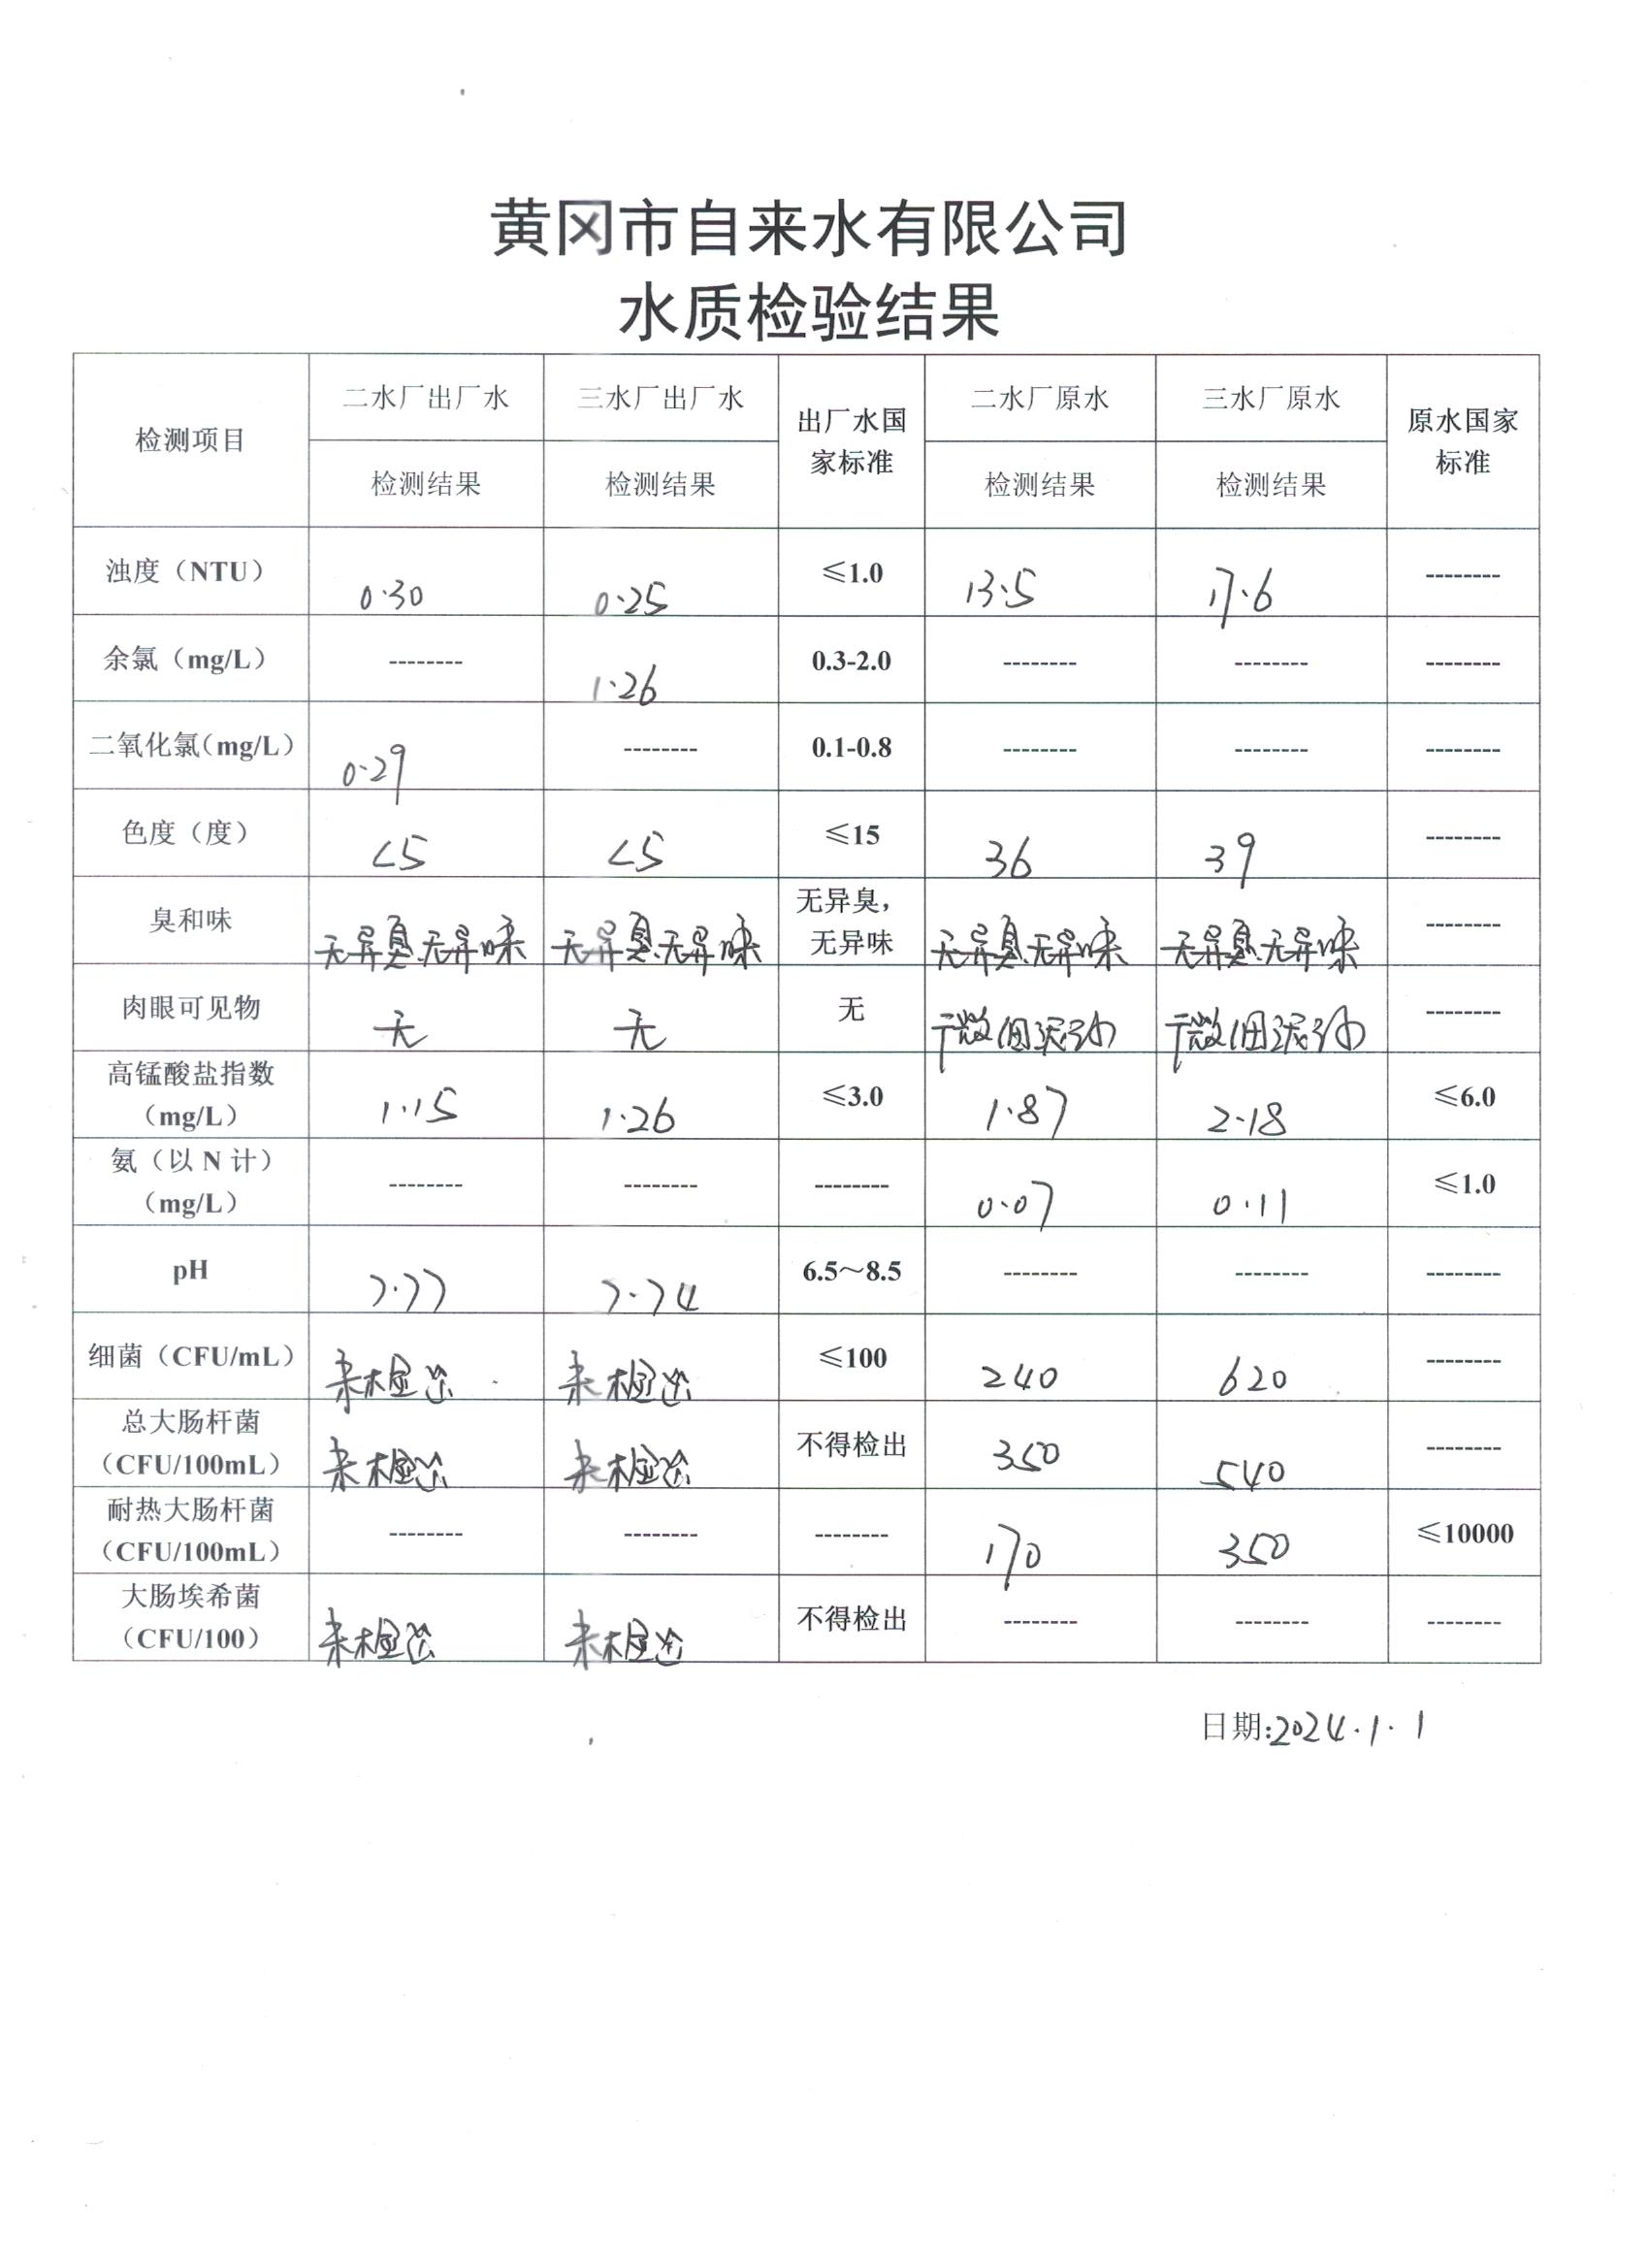 黄冈市自来水有限公司
水质检验结果
检测项目 二水厂出厂水 三水厂出厂水 出厂水国家标准 二水厂原水 三水厂原水 原水国家标准
检测结果 检测结果 检测结果 检测结果
浊度（NTU） 0.30 0.25 ≤1.0 13.5 17.6 --------
余氯（mg/L） -------- 1.26 0.3-2.0 -------- -------- --------
二氧化氯（mg/L） 0.29 -------- 0.1-0.8 -------- -------- --------
色度（度） <5 <5 ≤15 36 39 --------
臭和味 无异臭.无异味 无异臭.无异味 无异臭，无异味 无异臭.无异味 无异臭.无异味 --------
肉眼可见物 无 无 无 微细泥沙 微细泥沙 --------
高锰酸盐指数（mg/L） 1.15 1.26 ≤3.0 1.87 2.18 ≤6.0
氨（以 N 计）（mg/L） -------- -------- -------- 0.07 0.11 ≤1.0
pH 7.77 7.74 6.5～8.5 -------- -------- --------
细菌（CFU/mL） 未检出 未检出 ≤100 240 620 --------
总大肠杆菌（CFU/100mL） 未检出 未检出 不得检出 350 540 --------
耐热大肠杆菌（CFU/100mL） -------- -------- -------- 170 350 ≤10000
大肠埃希菌（CFU/100） 未检出 未检出 不得检出 -------- -------- --------
日期:2024.1.1